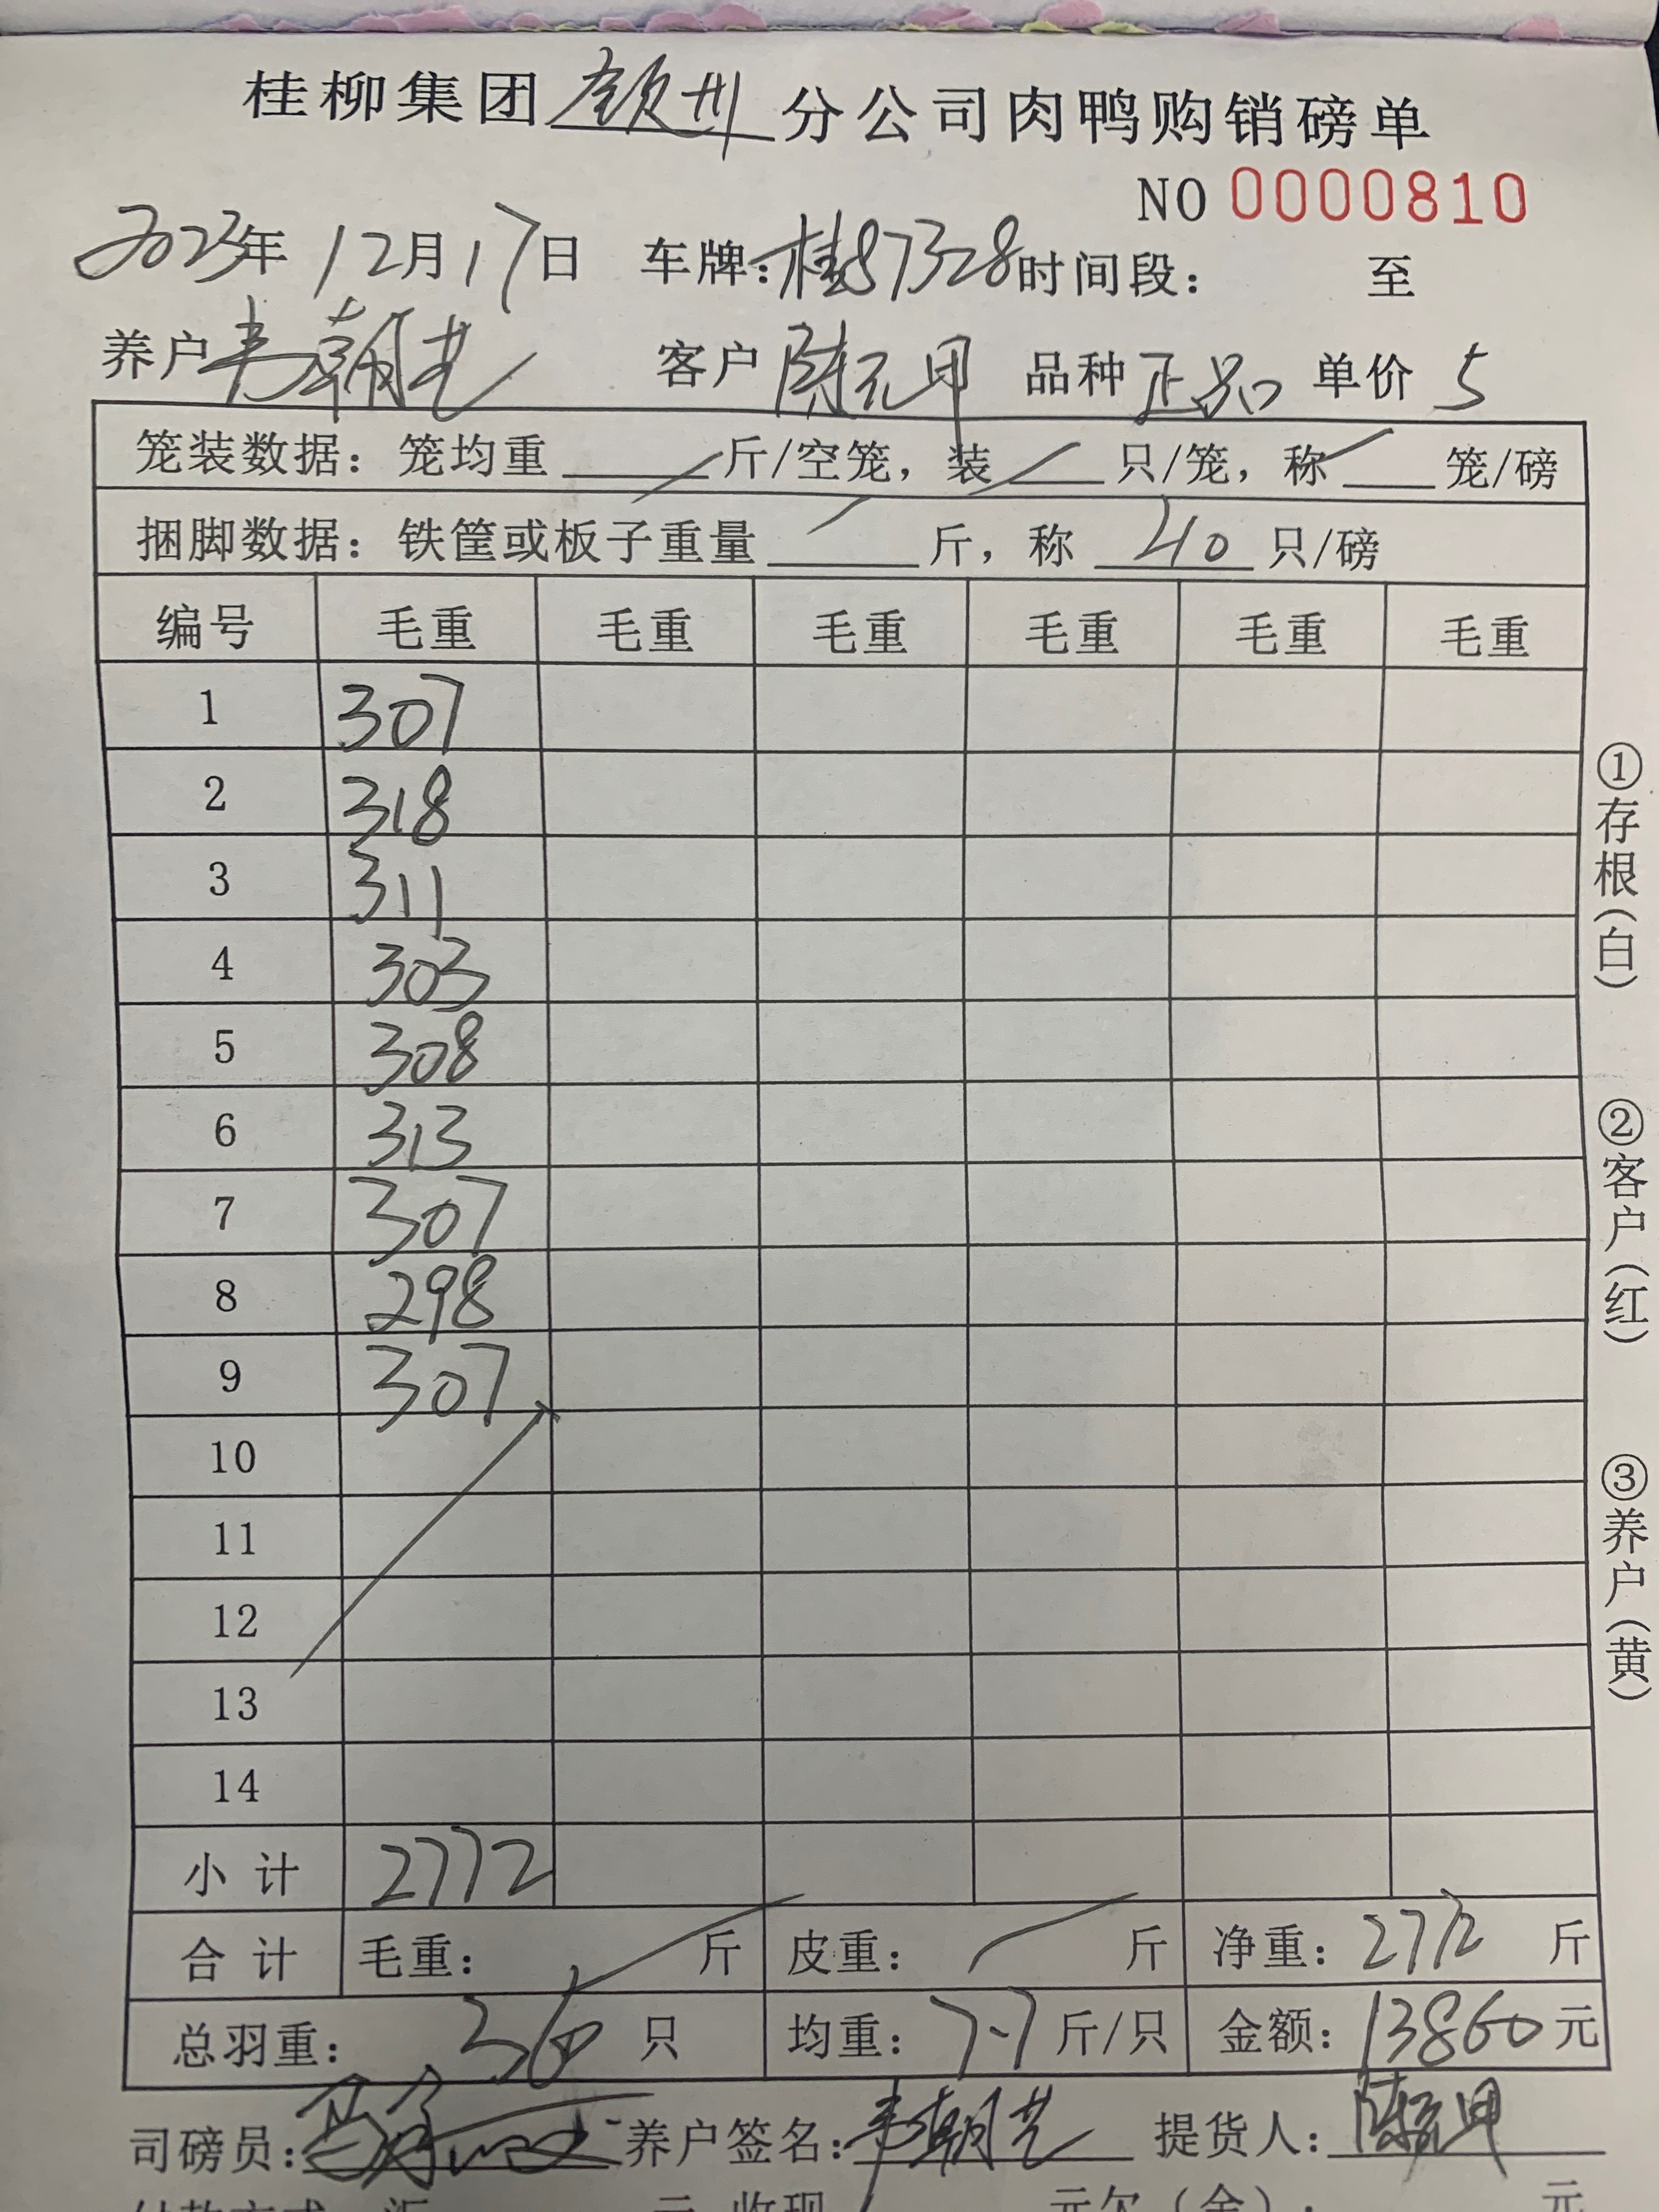 桂柳集团钦州分公司肉鸭购销磅单
NO 0000810
2023年12月17日 车牌:桂S7328时间段: 至
养户韦朝艺 客户陈元甲 品种正品 单价5
笼装数据: 笼均重 斤/空笼, 装 只/笼, 称 笼/磅
捆脚数据: 铁筐或板子重量 斤, 称 40 只/磅
编号 毛重 毛重 毛重 毛重 毛重 毛重
1 307
2 318
3 311
4 303
5 308
6 313
7 307
8 298
9 307
10
11
12
13
14
小计 2772
合计 毛重: 斤 皮重: 斤 净重: 2772 斤
总羽重: 360 只 均重: 7.7斤/只 金额: 13860元
司磅员: 养户签名:韦朝艺 提货人:陈元甲
付款方式 汇 元 收现 元欠(余): 元
①存根(白)
②客户(红)
③养户(黄)